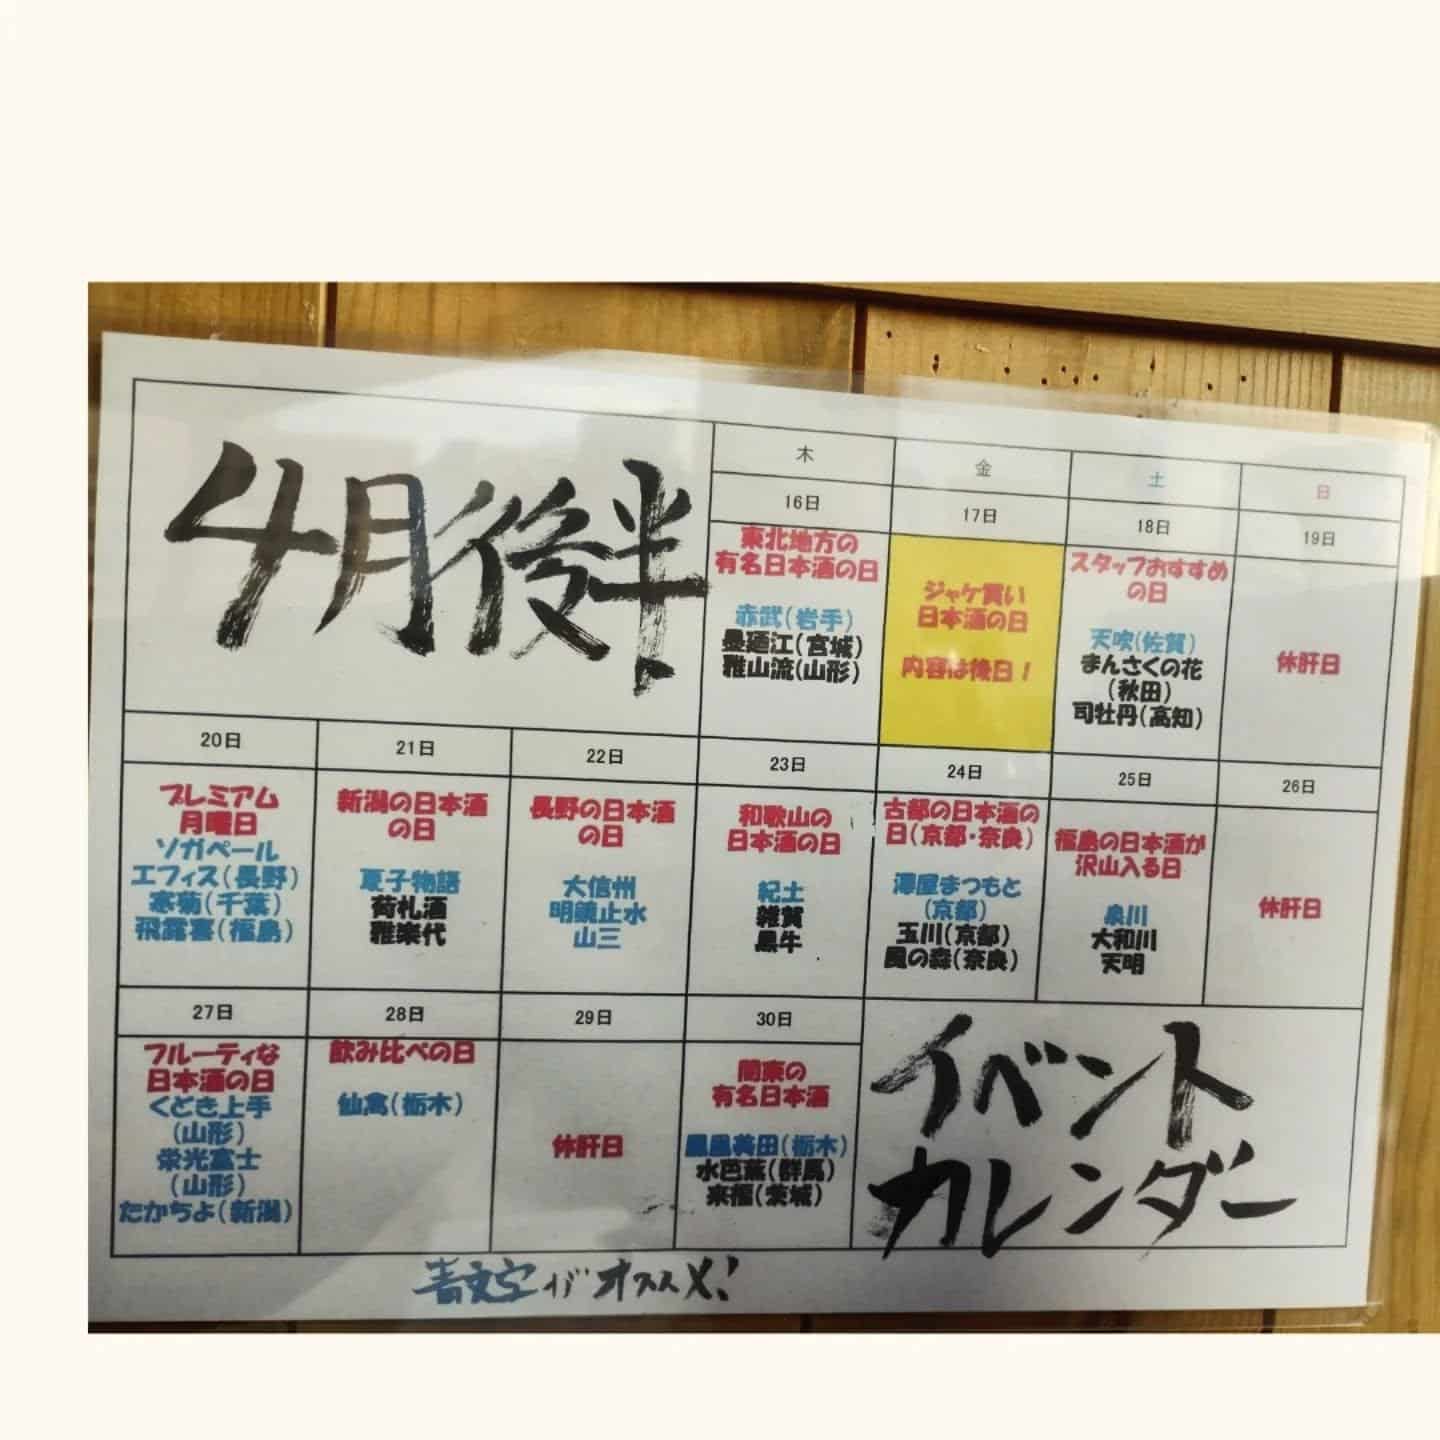 4月後半
木
金
土
日
16日
17日
18日
19日
東北地方の
有名日本酒の日
赤武(岩手)
墨廼江(宮城)
雅山流(山形)
ジャケ買い
日本酒の日
内容は後日！
スタッフおすすめ
の日
天吹(佐賀)
まんさくの花
(秋田)
司牡丹(高知)
休肝日
20日
21日
22日
23日
24日
25日
26日
プレミアム
月曜日
ソガペール
エフィス(長野)
寒菊(千葉)
飛露喜(福島)
新潟の日本酒
の日
夏子物語
荷札酒
雅楽代
長野の日本酒
の日
大信州
明鏡止水
山三
和歌山の
日本酒の日
紀土
雑賀
黒牛
古都の日本酒の
日(京都・奈良)
澤屋まつもと
(京都)
玉川(京都)
風の森(奈良)
福島の日本酒が
沢山入る日
泉川
大和川
天明
休肝日
27日
28日
29日
30日
フルーティな
日本酒の日
くどき上手
(山形)
栄光冨士
(山形)
たかちよ(新潟)
飲み比べの日
仙禽(栃木)
休肝日
関東の
有名日本酒
鳳凰美田(栃木)
水芭蕉(群馬)
来福(茨城)
イベント
カレンダー
青文字がオススメ!